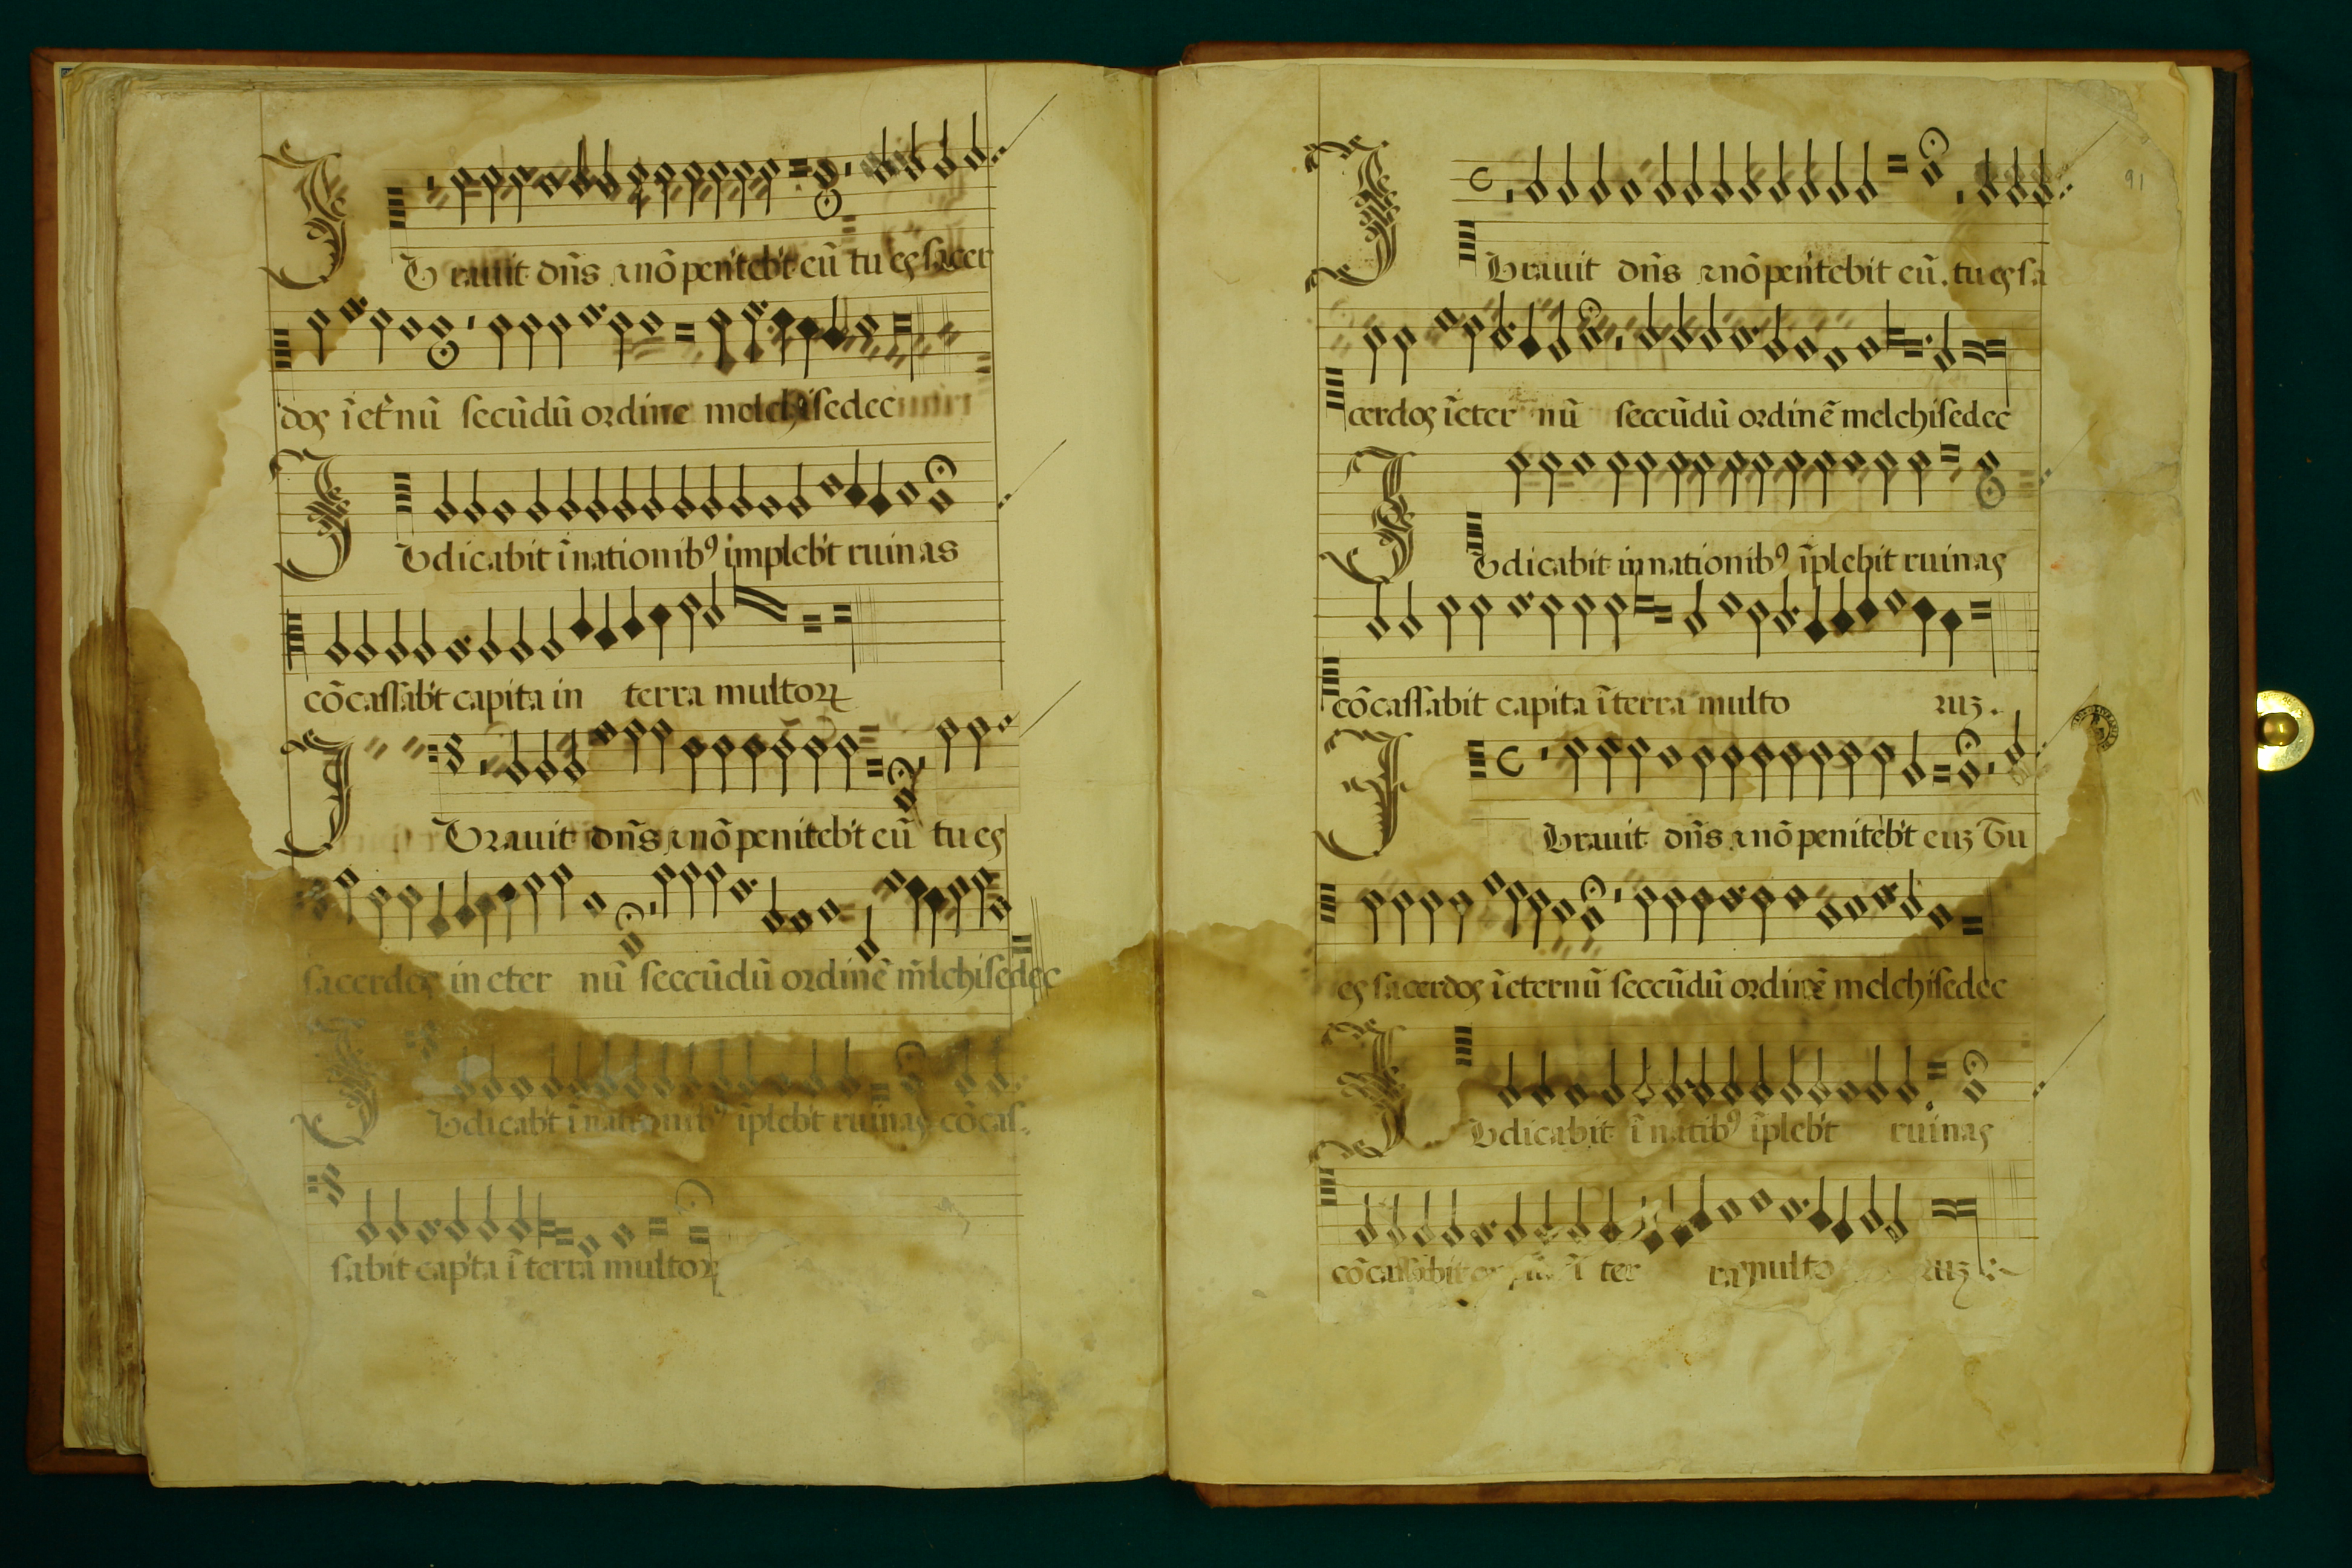 JUrauit dñs ⁊ nõ penitebt eũ tu es sacer
dos ĩ et̃nũ secũdũ ordine melchisedec
JUdicabit ĩ nationibꝰ implebt ruinas
cõcassabt capita in terra multoꝝ
JUrauit dñs ⁊ nõ penitebt eũ tu es
sacerdos in eter nũ seccũdũ ordinẽ m̃lchisedec
JUdicabt ĩ nationibꝰ ĩplebt ruinas cõcas
sabit capta ĩ terra multoꝝ
91
JUrauit dñs ⁊ nõ penitebit eũ. tu es sa
cerdos ĩ eter nũ seccũdũ ordinẽ melchisedec
JUdicabit in nationibꝰ ĩplebit ruinas
cõcassabit capita ĩ terra multo ruꝫ.
JUrauit dñs ⁊ nõ penitebt euꝫ Tu
es sacerdos ĩ eternũ seccũdũ ordinẽ melchisedec
JUdicabit ĩ natibꝰ ĩplebt ruinas
cõcassabit ĩ ter ra multo ruꝫ